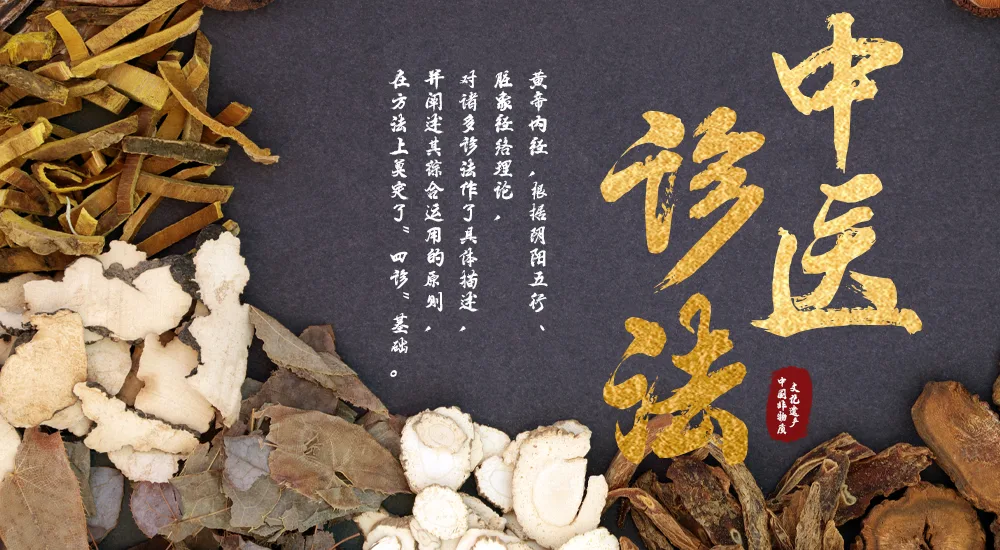 中医
诊法
中国非物质
文化遗产
黄帝内经，根据阴阳五行、
脏象经络理论，
对诸多诊法作了具体描述，
并阐述其综合运用的原则，
在方法上奠定了“四诊”基础。